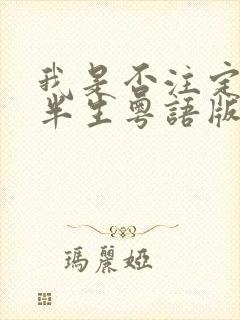 我是否注定
半生粵語版
瑪麗婭